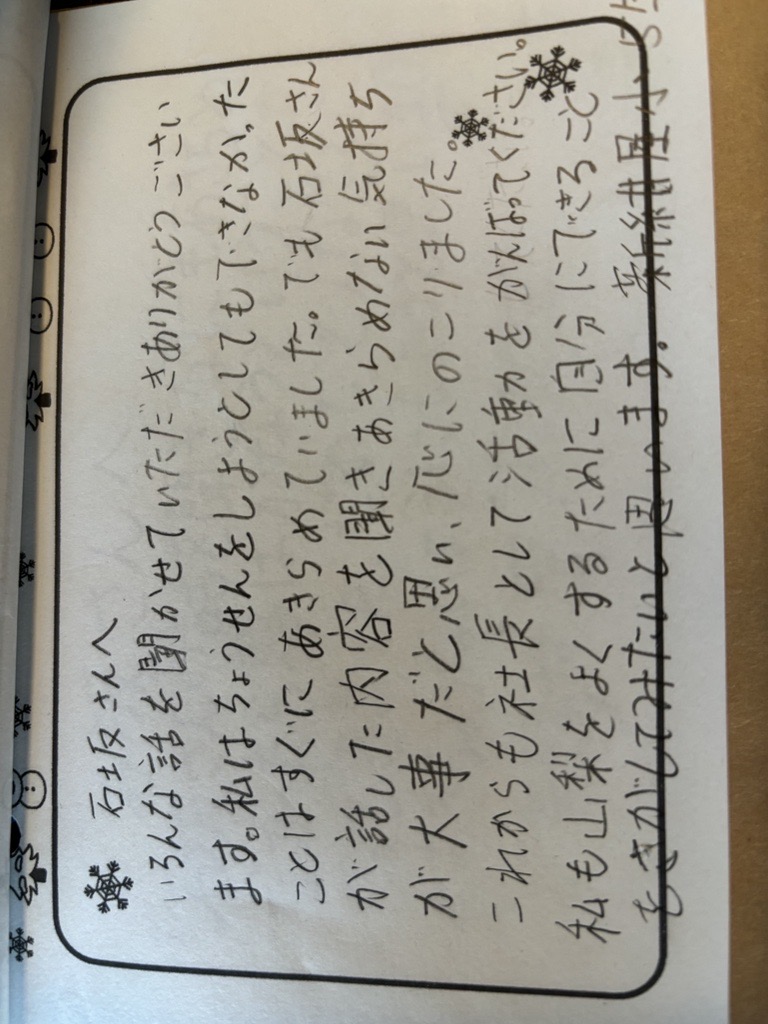 石坂さんへ
いろんな話を聞かせていただきありがとうごさい
ます。私はちょうせんをしようとしてもできなかった
ことはすぐにあきらめていました。でも石坂さん
が話した内容を聞きあきらめない気持ち
が大事だと思い、心にのこりました。
これからも社長として活動をがんばってください。
私も山梨をよくするために自分にできること
をさがしてみたいと思います。新紺屋小